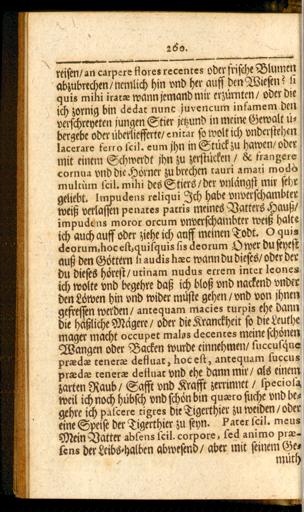 260.
reisen/ an carpere flores recentes oder frische Blumen
abzubrechen/ nemlich hin vnd her auff den Wiesen? si
quis mihi iratæ wann jemand mir erzürnten/ oder die
ich zornig bin dedat nunc juvencum infamem den
verschreyeten jungen Stier jetzund in meine Gewalt ü-
bergebe oder überliefferte/ enitar so wolt ich vnderstehen
lacerare ferro scil. eum jhn in Stück zu hawen/ oder
mit einem Schwerdt jhn zu zerstücken/ & frangere
cornua vnd die Hörner zubrechen tauri amati modò
multùm scil. mihi des Stiers/ der vnlängst mir sehr
geliebt. Impudens reliqui Ich habe vnverschambter
weiß verlassen penates patris meines Vatters Hauß/
impudens moror orcum vnverschambter weiß halte
ich auch auff oder ziehe ich auff meinen Todt. O quis
deorum, hoc est, quisquis sis deorum O wer du seyest
auß den Göttern si audis hæc wann du dieses/ oder der
du dieses hörest/ utinam nudus errem inter leones
ich wolte vnd begehre daß ich bloß vnd nackend vnder
den Löwen hin vnd wider müste gehen/ vnd von jhnen
gefressen werden/ antequam macies turpis ehe dann
die häßliche Mägere/ oder die Kranckheit so die Leuthe
mager macht occupet malas decentes meine schönen
Wangen oder Backen wurde einnehmen/ succusque
prædæ teneræ defluat, hoc est, antequam succus
prædæ teneræ defluat vnd ehe dann mir/ als einem
zarten Raub/ Safft vnd Krafft zerrinnet/ speciosa
weil ich noch hübsch vnd schön bin quæro suche vnd be-
gehre ich pascere tigres die Tigerthier zu weiden/ oder
eine Speise der Tigerthier zu seyn. Pater scil. meus
Mein Vatter absens scil. corpore, sed animo præ-
sens der Leibs-halben abwesend/ aber mit seinem Ge-
müth